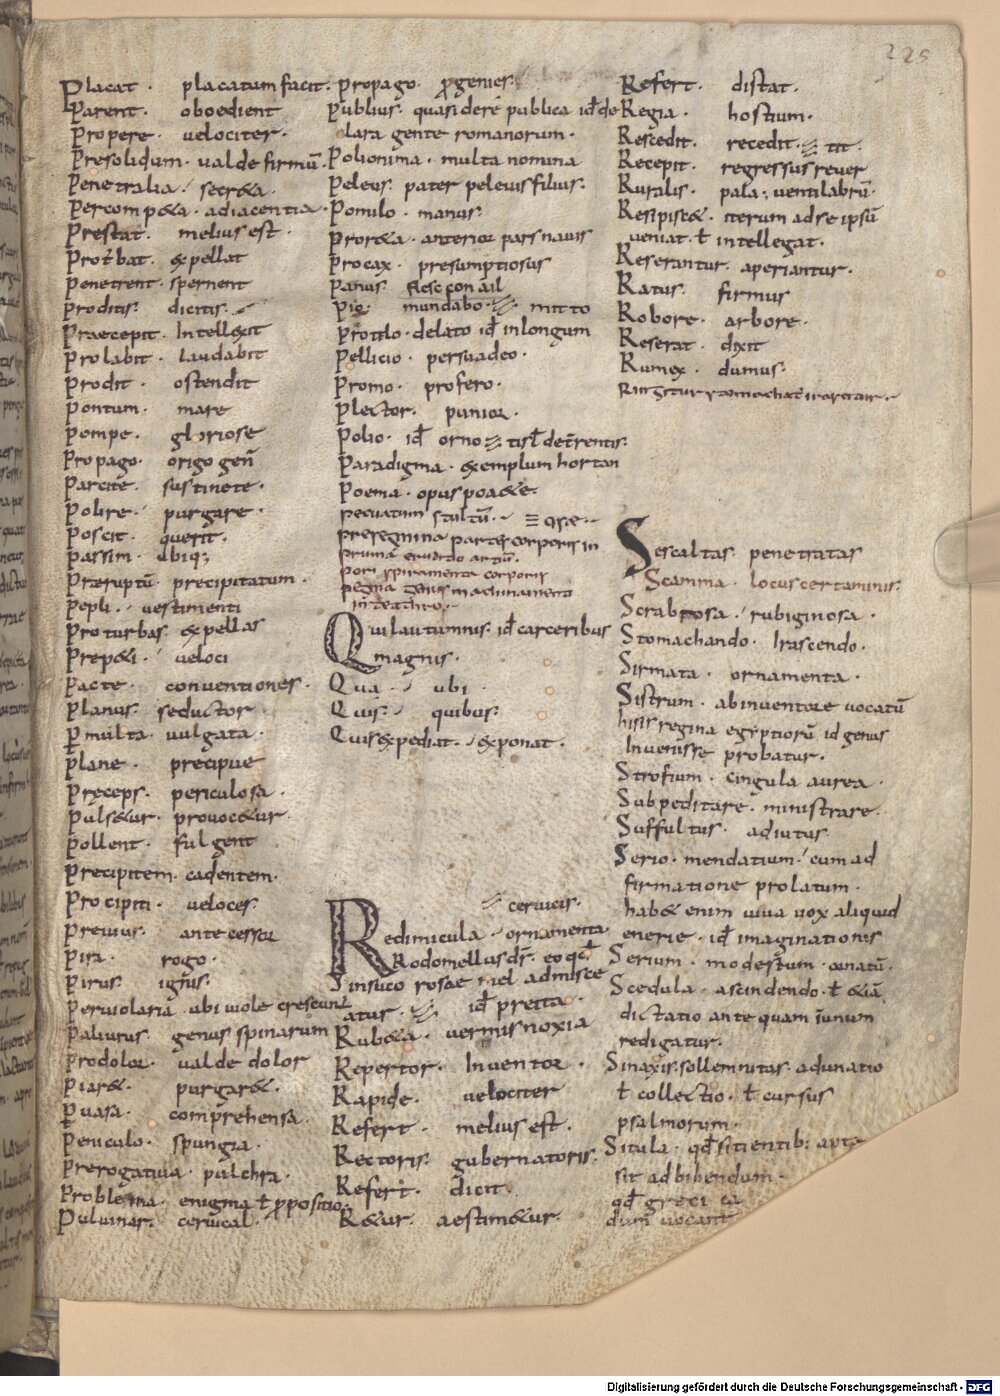 225
Placat · placatum facit ·
Parent · oboedient
Propere · velociter ·
Presolidum · ualde firmũ ·
Penetralia · secr&a ·
Percomp&a · adiacentia ·
Prestat · melius est ·
expellat
Penetrent · spernent
Proditis · dicitis ·
Praecepit · Intellexit
Prolabit · laudabit
Prodit · ostendit
Pontum · mare
Pompe · gloriose
Propago · origo geñ
Parcite · sustinete ·
Polire · purgare ·
Poscit · querit ·
Passim · ubiq;
Præruptũ · precipitatum ·
Pepli · vestimenti
Proturbas · expellas
Prep&i · veloci
Pacte · conventiones ·
Planus · seductor ·
P̱multa · vulgata ·
Plane · precipue
Pręceps · periculosa ·
Puls&ur · provoc&ur ·
Pollent · fulgent
Precipitem · cadentem ·
Procipiti · veloces ·
Previus · antecessor
Pira · rogo ·
Pirus · ignis ·
Perviolaria · ubi viole crescunt
Paliurus · genus spinarum
Prodolor · valde dolor
Piar& · purgar& ·
Puasa · comprehensa ·
Peniculo · spungia ·
Prerogativa · pulchra ·
Problema · enigma ł p̱positio ·
Pulvinar · cervical ·
Propago · p̱genies ·
Publius · quasi dere publica id̄ de
clara gente romanorum ·
Polionima · multa nomina
Peleos · pater peleius filius ·
Pomilo · manus ·
Pror&a · anterior pars navis
Procax · presumptiosus
Panus
Pio · mundabo · mitto
Protelo · delato id̄ in longum
Pellicio · persuadeo ·
Promo · profero ·
Plector · punior ·
Polio · id̄ orno
Paradigma · exemplum
Poema · opus po&ae ·
peregrina partes corporis in
pori spiramenta corporis
pegma genus machinamenti
in teathro ·
Qui lautumnis · id̄ carceribus
magnis ·
Qua · ubi ·
Quis · quibus ·
Quis expediat · exponat ·
cervicis ·
Redimicula · ornamenta
Rodomellus dr̄ · eo qd̄
Insuco rosae mel admisce
atur ·
Rub&a · vermis noxia
Repertor · Inventor ·
Rapide · velociter
Refert · melius est ·
Rectoris · gubernatoris ·
Refert · dicit ·
R&ur · aestim&ur ·
Refert · distat ·
Regia · hostium ·
Rescedit · recedit ·
Recepit · regressus
Ruralis · pala ; ventilabrũ ·
Resipisc& · iterum ad se ipsũ
veniat · ł intellegat ·
Reserantur · aperiantur ·
Ratus · firmus
Robore · arbore ·
Reserat · dixit
Rumex · dumus ·
Sescaltas · penetratas
Scamma · locus certaminis ·
Scabrosa · rubiginosa ·
Stomachando · Irascendo ·
Sirmata · ornamenta ·
Sistrum · ab inventore vocatũ
hisis regina egyptiorũ id genus
Invenisse probatur ·
Strofium · cingula aurea ·
Subpeditare · ministrare ·
Suffultus · adiutus
Serio · mendatium · cum ad
firmatione prolatum ·
hab& enim viva vox aliquid
enerie · id̄ imaginationis
Serium · modestum · ornatũ ·
Scedula · a scindendo · ł &iã
dictatio ante quam iunium
redigatur ·
Sinaxis · sollemnitas · adunatio
ł collectio · ł cursus
psalmorum ·
Situla · qd̄ sitientib; apta
sit ad bibendum ·
qd̄ greci ca
dum vocant
Digitalisierung gefördert durch die Deutsche Forschungsgemeinschaft - DFG